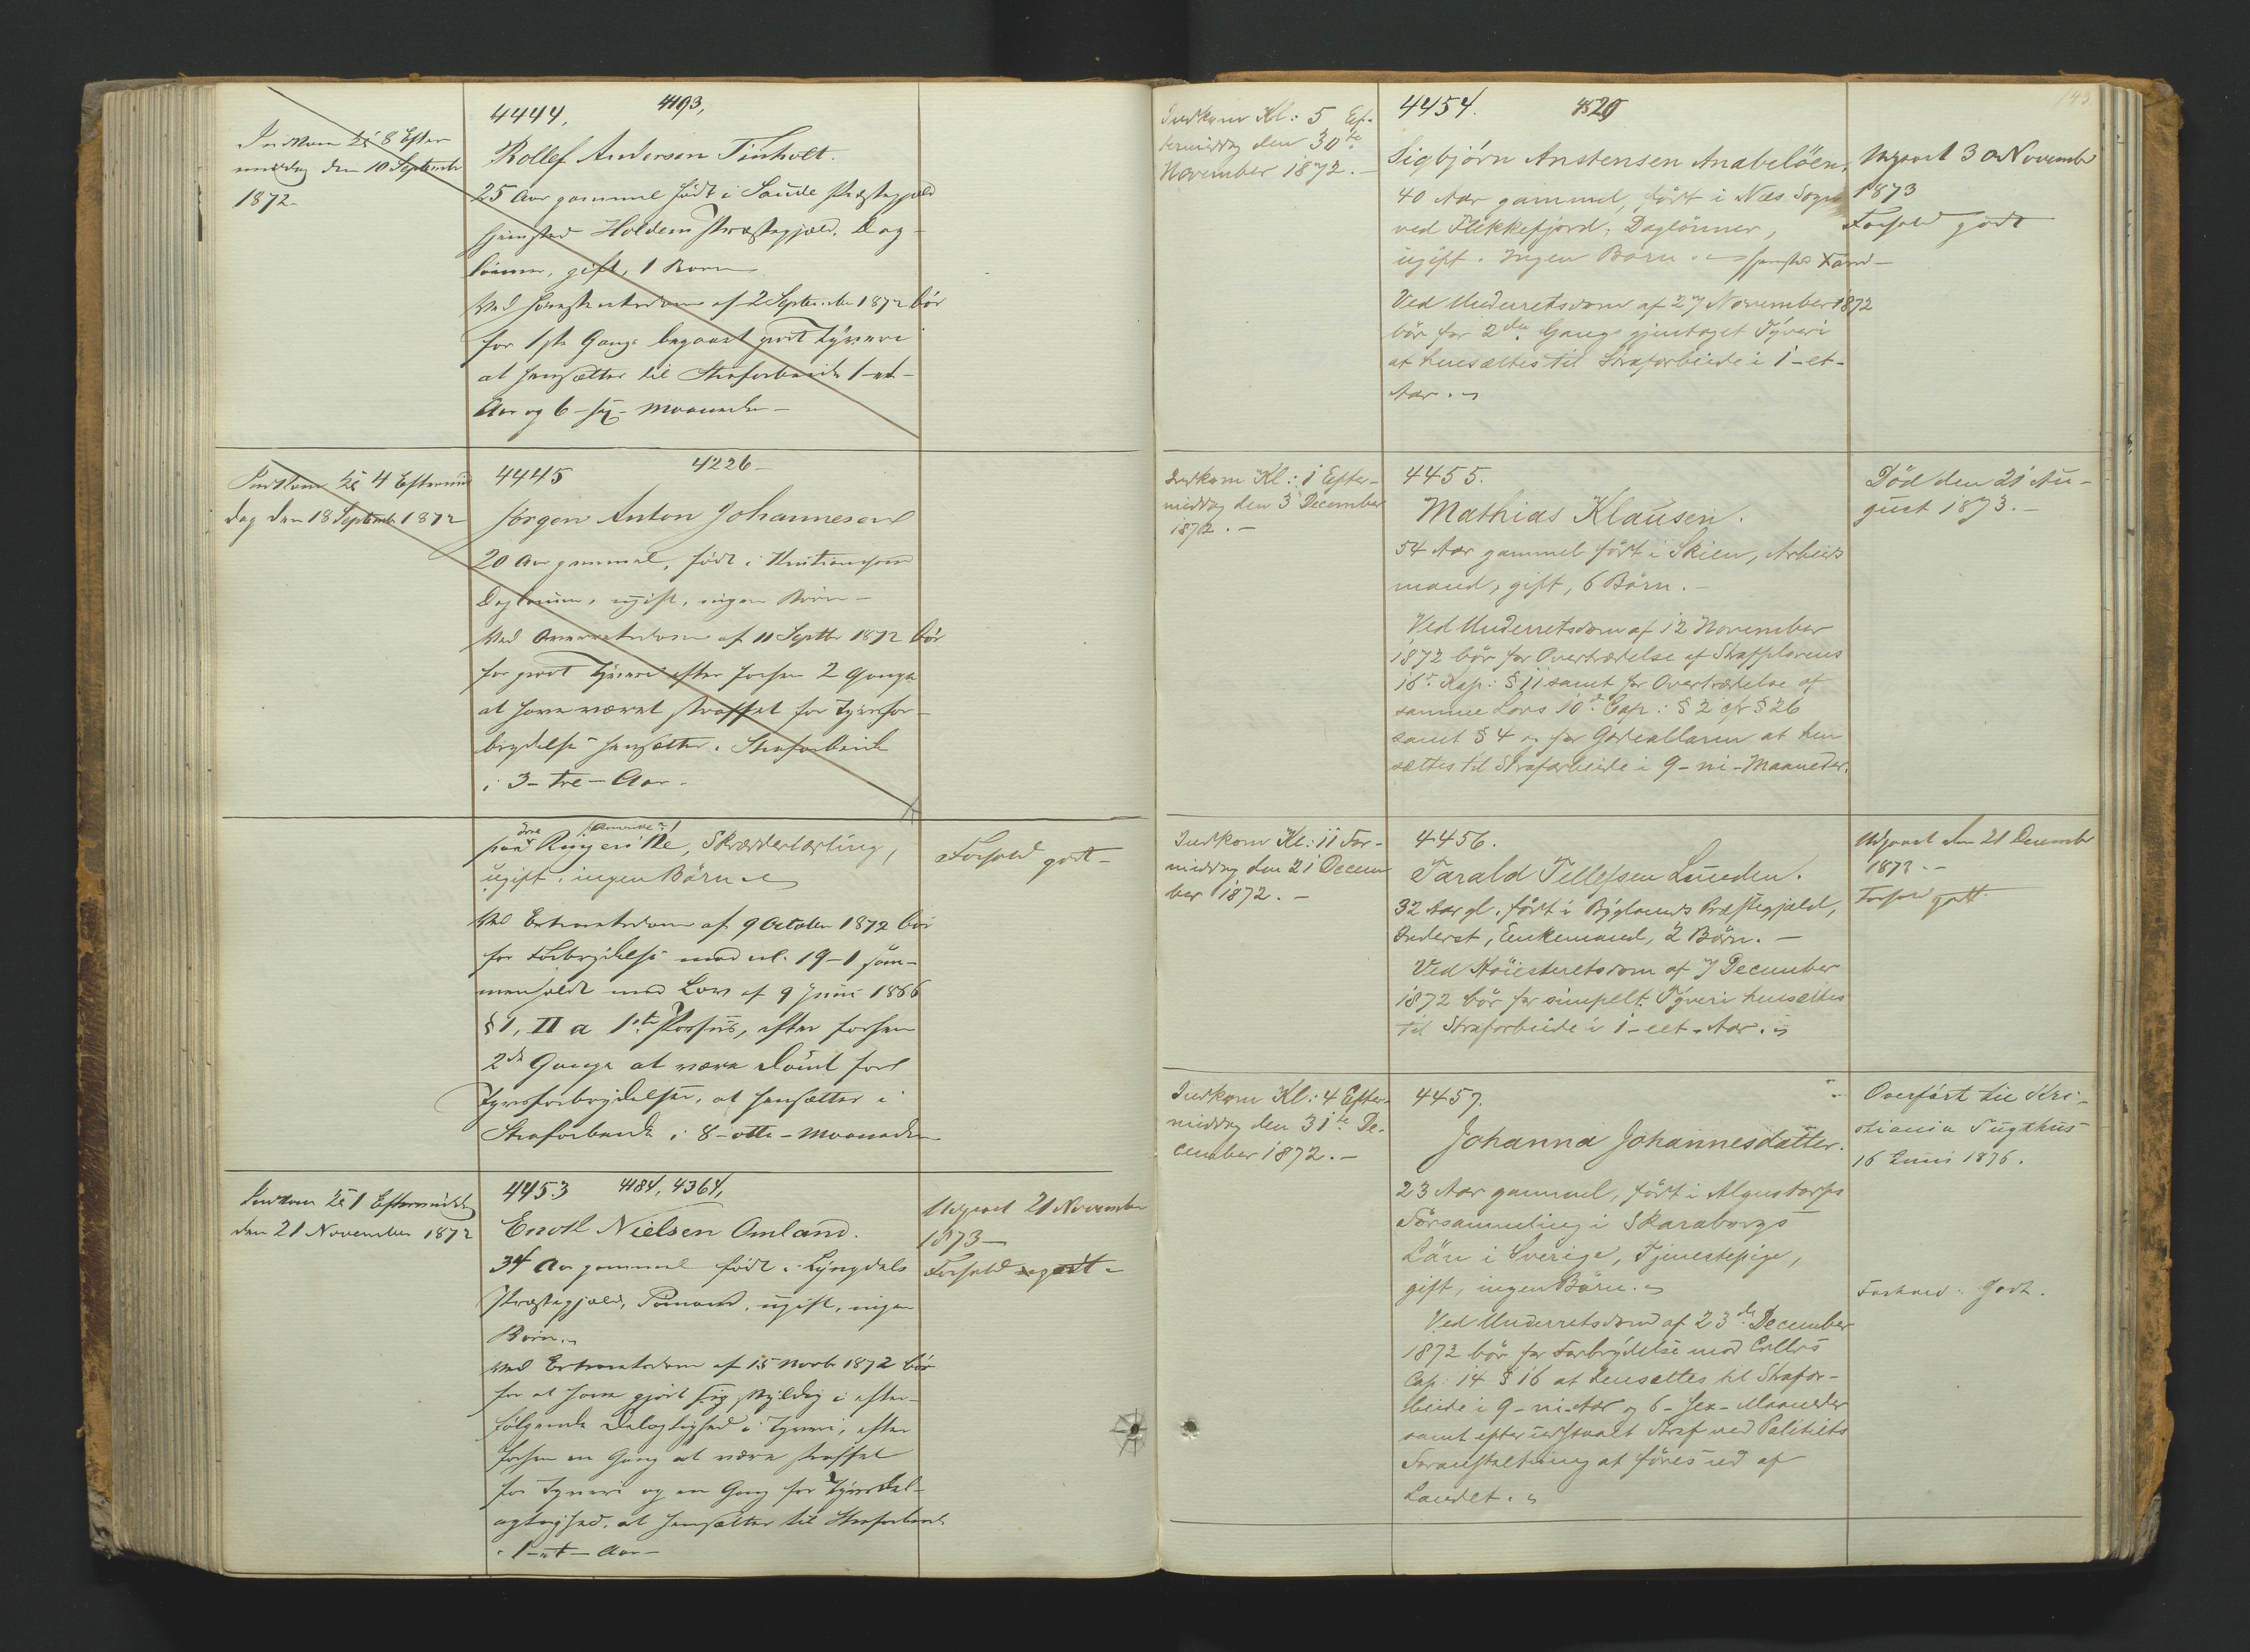 Indkom Kl 8 Efter
middag den 10 September
1872.
4444. 4193,
Rollef Andersen Tinholt.
25 Aar gammel født i Saude Præstegjæld
Hjemsted Holden Præstegjæld. Dag-
lönner, gift, 1 Barn
Ved Höiesteretsdom af 2 September 1872 bör
for 1ste Gang begaaet grovt Tyveri
at hensættes til Strafarbeide 1 - et -
Aar og 6 - sex - Maaneder -
Indkom Kl 4 Eftermid
dag den 18 September 1872
4445 4226 -
Jörgen Anton Johannesen
20 Aar gammel, födt i Kristiansand
Daglönner, ugift, ingen Börn -
Ved Overretsdom af 11 Septbr 1872 bör
for grovt Tyveri efter forhen 2 Gange
at have været straffet for Tyvsfor-
brydelse hensættes i Strafarbeide
i 3 - tre - Aar -
paa Ringerike, Skrædderlærling,
ugift, ingen Börn
Ved Extraretsdom af 9 October 1872 bör
for Forbrydelse mod cl. 19-1 sam-
menholdt med Lov af 9 Juni 1866
§ 1, II a 1ste Passus, efter forhen
2de Gange at være dömt for
Tyvsforbrydelser, at hensættes i
Strafarbeide i 8 - otte - Maaneder
Forhold godt -
Indkom Kl 1 Eftermiddag
den 21 November 1872
4453 4184, 4364,
Enok Nielsen Omland.
34 Aar gammel födt i Lyngdals
Præstegjæld, Sömand, ugift, ingen
Börn.
Ved Extraretsdom af 15 Novbr 1872 bör
for at have gjort sig skyldig i efter-
fölgende Delagtighed i Tyveri, efter
forhen en Gang at være straffet
for Tyveri og en Gang for Tyvsdel-
agtighed, at hensættes til Strafarbeide
i 1 - et - Aar -
Udgaaet 21 November
1873 -
Forhold godt -
143
Indkom Kl: 5 Ef-
termiddag den 30te
November 1872. -
4454. 4529
Sigbjörn Anstensen Anabelöen.
40 Aar gammel, född i Næs Sogn
ved Flekkefjord, Daglönner,
ugift. Ingen Börn.
Ved Underretsdom af 27 November 1872
bör for 2den Gang gjentaget Tyveri
at hensættes til Strafarbeide i 1 - et -
Aar.
Udgaaet 30 Novembr
1873
Forhold godt
Indkom Kl: 1 Efter-
middag den 3 December
1872. -
4455.
Mathias Klausen.
54 Aar gammel födt i Skien, Arbeids
mand, gift, 6 Börn. -
Ved Underretsdom af 12 November
1872 bör for Overtrædelse af Straffelovens
16de Kap: § 11 samt for Overtrædelse af
samme Lovs 10de Cap: § 2 cfr § 26
samt § 4 at hen
sættes til Strafarbeide i 9 - ni - Maaneder.
Död den 21 Au-
gust 1873. -
Indkom Kl: 11 For-
middag den 21 Decem
ber 1872. -
4456.
Tarald Tellefsen Lunden.
32 Aar gl. födt i Byglands Præstegjæld,
Inderst, Enkemand, 2 Börn. -
Ved Höiesteretsdom af 7 December
1872 bör for simpelt Tyveri hensættes
til Strafarbeide i 1 - eet - Aar.
Udgaaet den 21 Decembr
1873. -
Forhold godt
Indkom Kl: 4 Efter-
middag den 31te De-
cember 1872. -
4457.
Johanna Johannesdatter.
23 Aar gammel, födt i Algustorps
Försammling i Skaraborgs
Län i Sverige, Tjenestepige,
gift, ingen Börn.
Ved Underretsdom af 23de December
1872 bör for Forbrydelse mod Crlls
Cap: 14 § 16 at hensættes til Strafar-
beide i 9 - ni - Aar og 6 - sex - Maaneder
samt efter udstaaet Straf ved Politiets
Foranstaltning at föres ud af
Landet.
Overfört til Kri-
stiania Tugthus
16 Juni 1876.
Forhold: Godt.